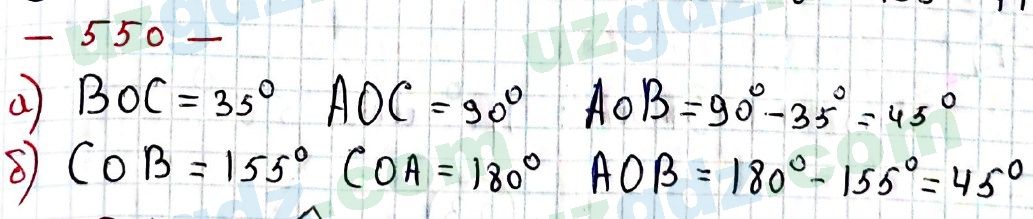 - 550 -
а) BOC = 35° AOC = 90° AOB = 90° - 35° = 45°
б) COB = 155° COA = 180° AOB = 180° - 155° = 45°
uzgdz.com